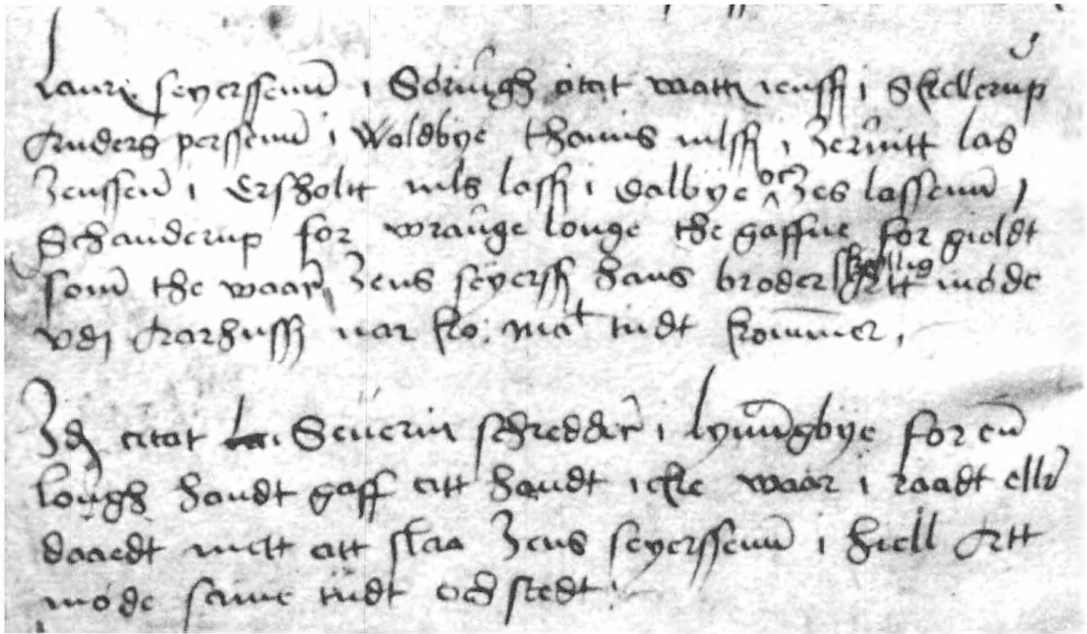 Lauri seyerssenn i Sōrūngh citat matz ienss i Skellerup
Anders perssenn i Woldbye thomis nilss i Zeruitt las
Zenssen i Ersholtt nils lass i dalbye oc Zes lassenn i
Schanderup for wrange louge the gaffue for gieldt
som the waar Zens seyerss hans broder skyllig Att mode
vdj Aarhuss nar ko: mat tiidt kommer,
Idj citat Seuerin schredder i lyungbye for en
lough handt gaff att handt icke waar i raadt eller
daaedt mett att slaa Zens seyerssenn i hiell Att
mode same tiidt och stedt